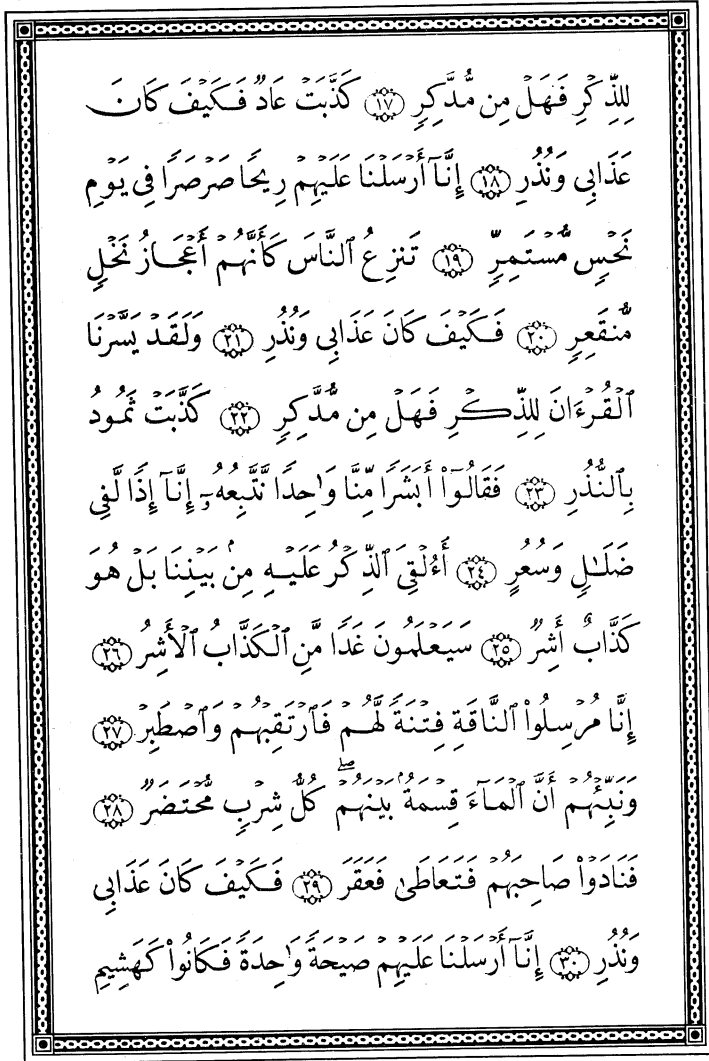 لِلذِّكْرِ فَهَلْ مِن مُّدَّكِرٍ ﴿١٧﴾ كَذَّبَتْ عَادٌ فَكَيْفَ كَانَ
عَذَابِى وَنُذُرِ ﴿١٨﴾ إِنَّآ أَرْسَلْنَا عَلَيْهِمْ رِيحًا صَرْصَرًا فِى يَوْمِ
نَحْسٍ مُّسْتَمِرٍّ ﴿١٩﴾ تَنزِعُ ٱلنَّاسَ كَأَنَّهُمْ أَعْجَازُ نَخْلٍ
مُّنقَعِرٍ ﴿٢٠﴾ فَكَيْفَ كَانَ عَذَابِى وَنُذُرِ ﴿٢١﴾ وَلَقَدْ يَسَّرْنَا
ٱلْقُرْءَانَ لِلذِّكْرِ فَهَلْ مِن مُّدَّكِرٍ ﴿٢٢﴾ كَذَّبَتْ ثَمُودُ
بِٱلنُّذُرِ ﴿٢٣﴾ فَقَالُوٓا۟ أَبَشَرًا مِّنَّا وَٰحِدًا نَّتَّبِعُهُۥٓ إِنَّآ إِذًا لَّفِى
ضَلَٰلٍ وَسُعُرٍ ﴿٢٤﴾ أَءُلْقِىَ ٱلذِّكْرُ عَلَيْهِ مِنۢ بَيْنِنَا بَلْ هُوَ
كَذَّابٌ أَشِرٌ ﴿٢٥﴾ سَيَعْلَمُونَ غَدًا مَّنِ ٱلْكَذَّابُ ٱلْأَشِرُ ﴿٢٦﴾
إِنَّا مُرْسِلُوا۟ ٱلنَّاقَةِ فِتْنَةً لَّهُمْ فَٱرْتَقِبْهُمْ وَٱصْطَبِرْ ﴿٢٧﴾
وَنَبِّئْهُمْ أَنَّ ٱلْمَآءَ قِسْمَةٌۢ بَيْنَهُمْ ۖ كُلُّ شِرْبٍ مُّحْتَضَرٌ ﴿٢٨﴾
فَنَادَوْا۟ صَاحِبَهُمْ فَتَعَاطَىٰ فَعَقَرَ ﴿٢٩﴾ فَكَيْفَ كَانَ عَذَابِى
وَنُذُرِ ﴿٣٠﴾ إِنَّآ أَرْسَلْنَا عَلَيْهِمْ صَيْحَةً وَٰحِدَةً فَكَانُوا۟ كَهَشِيمِ